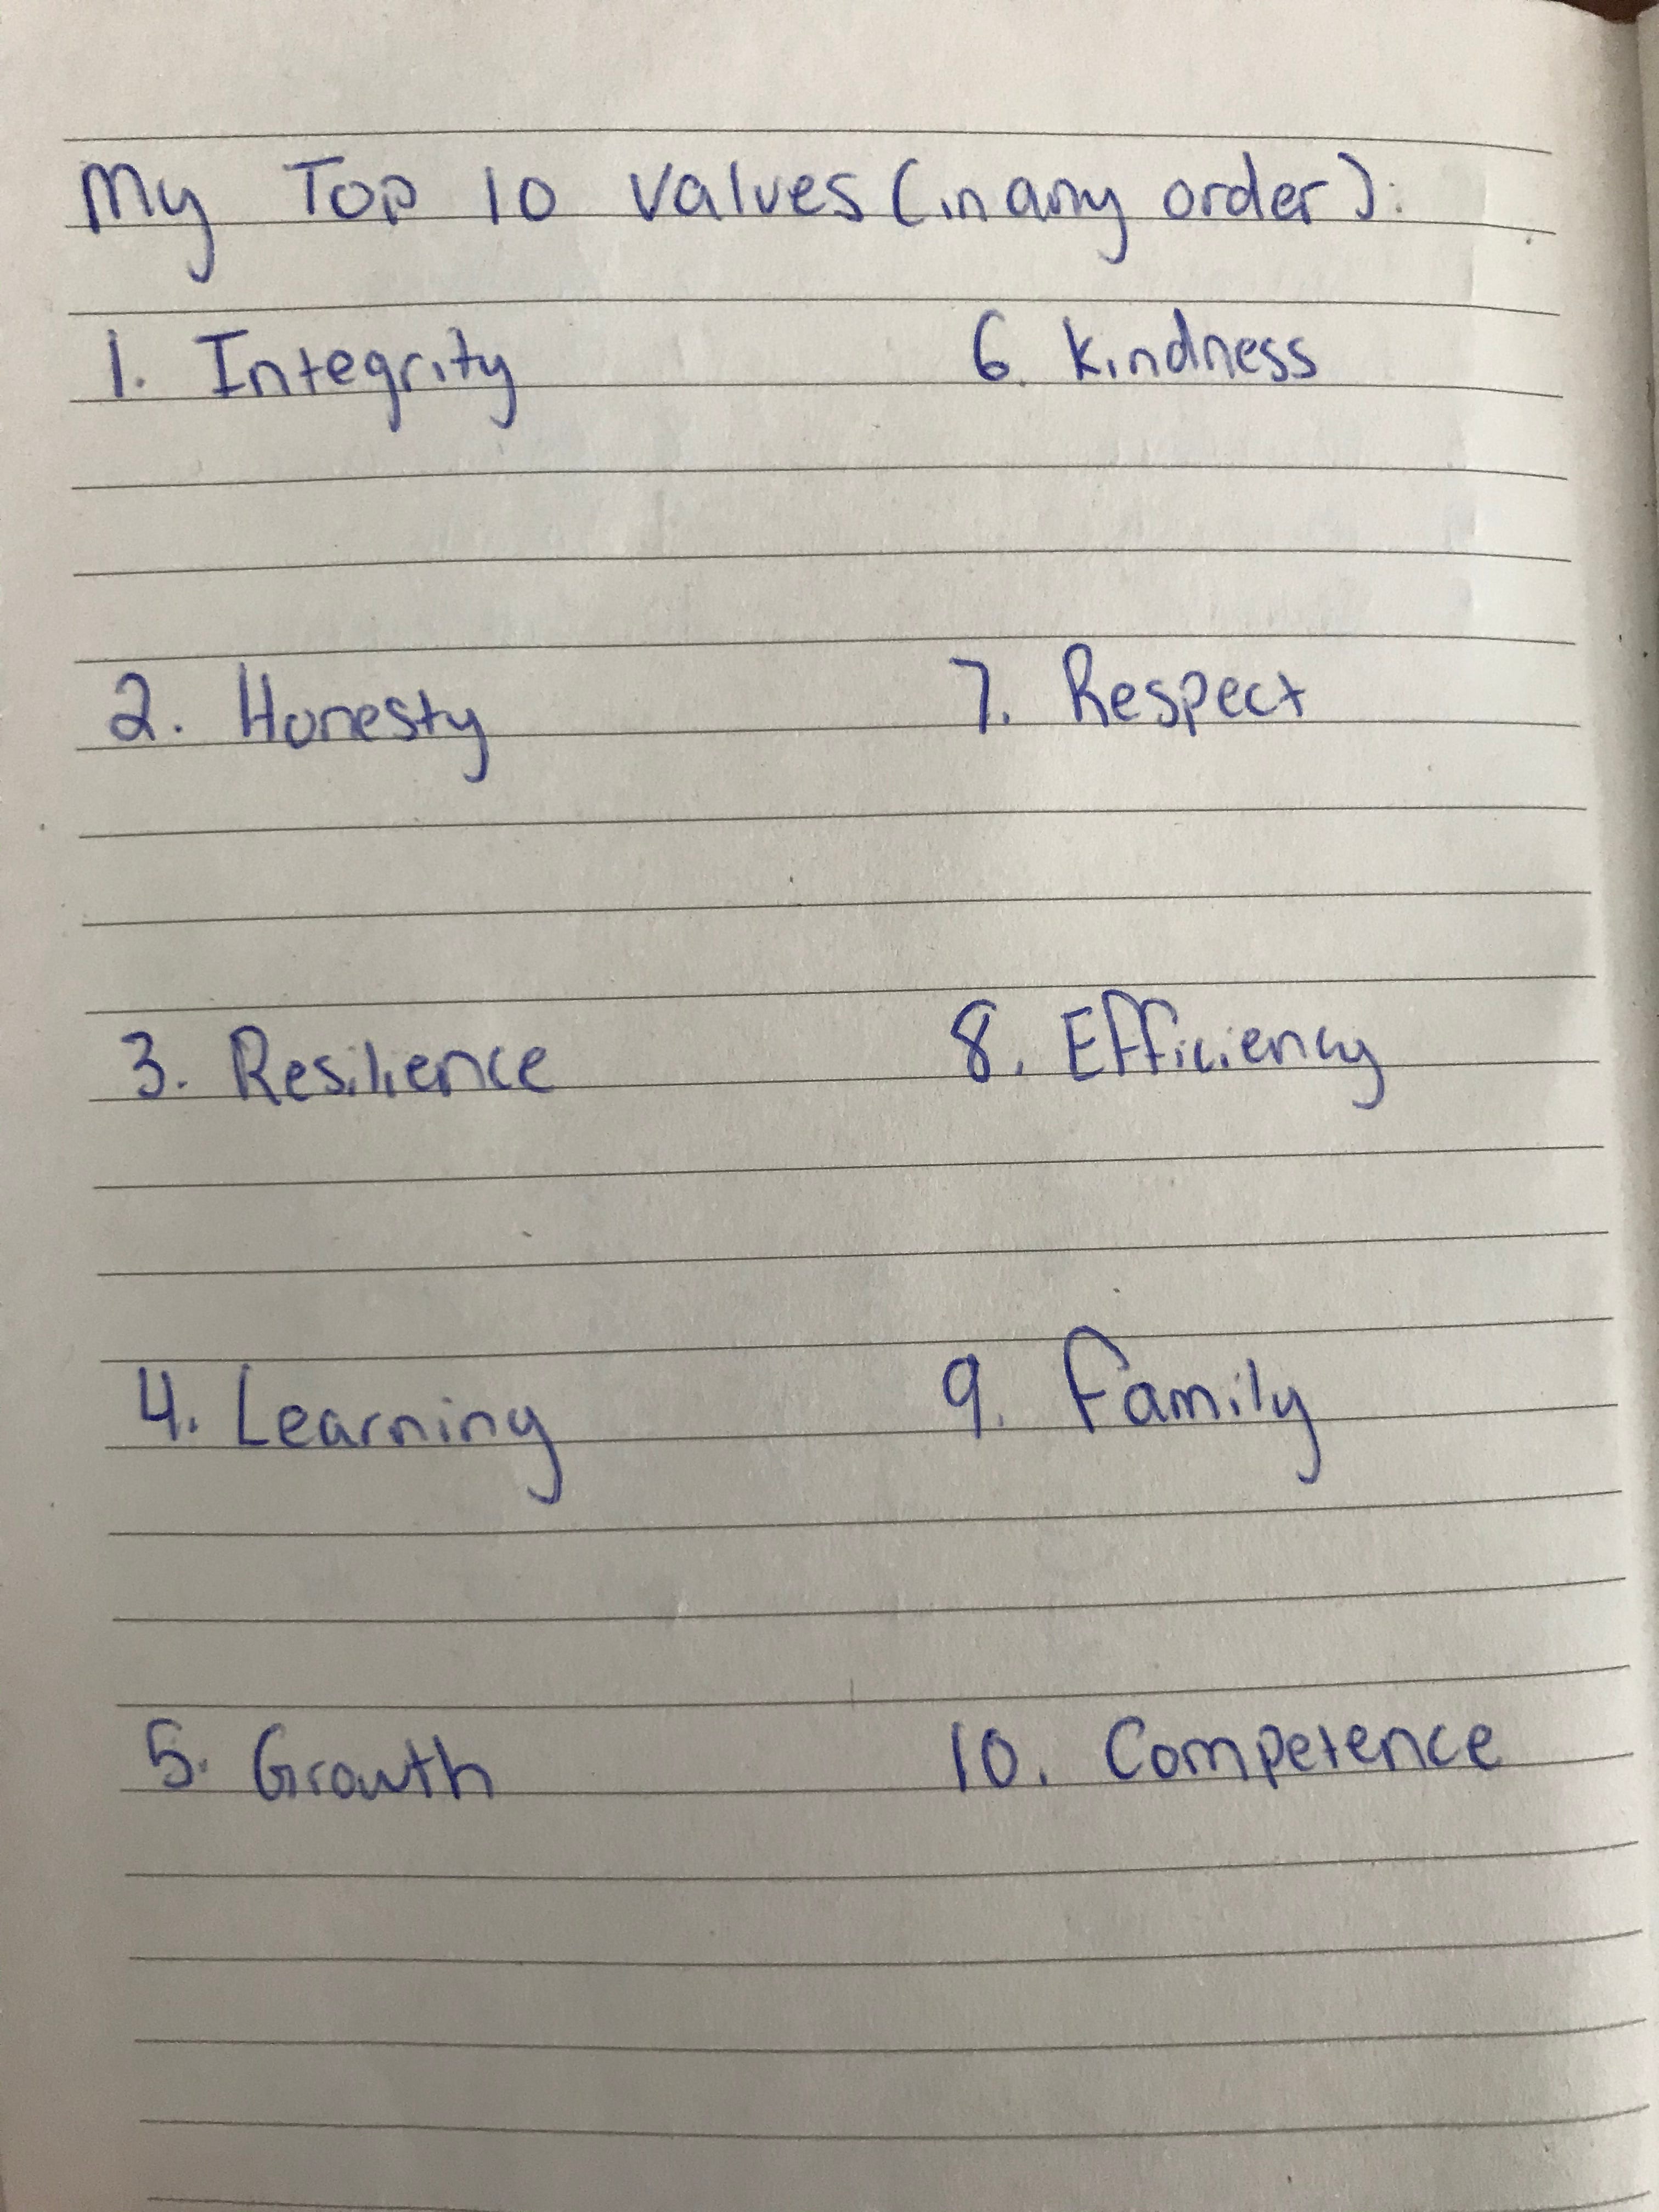 My Top 10 values (in any order):
1. Integrity
6. Kindness
2. Honesty
7. Respect
3. Resilience
8. Efficiency
4. Learning
9. Family
5. Growth
10. Competence